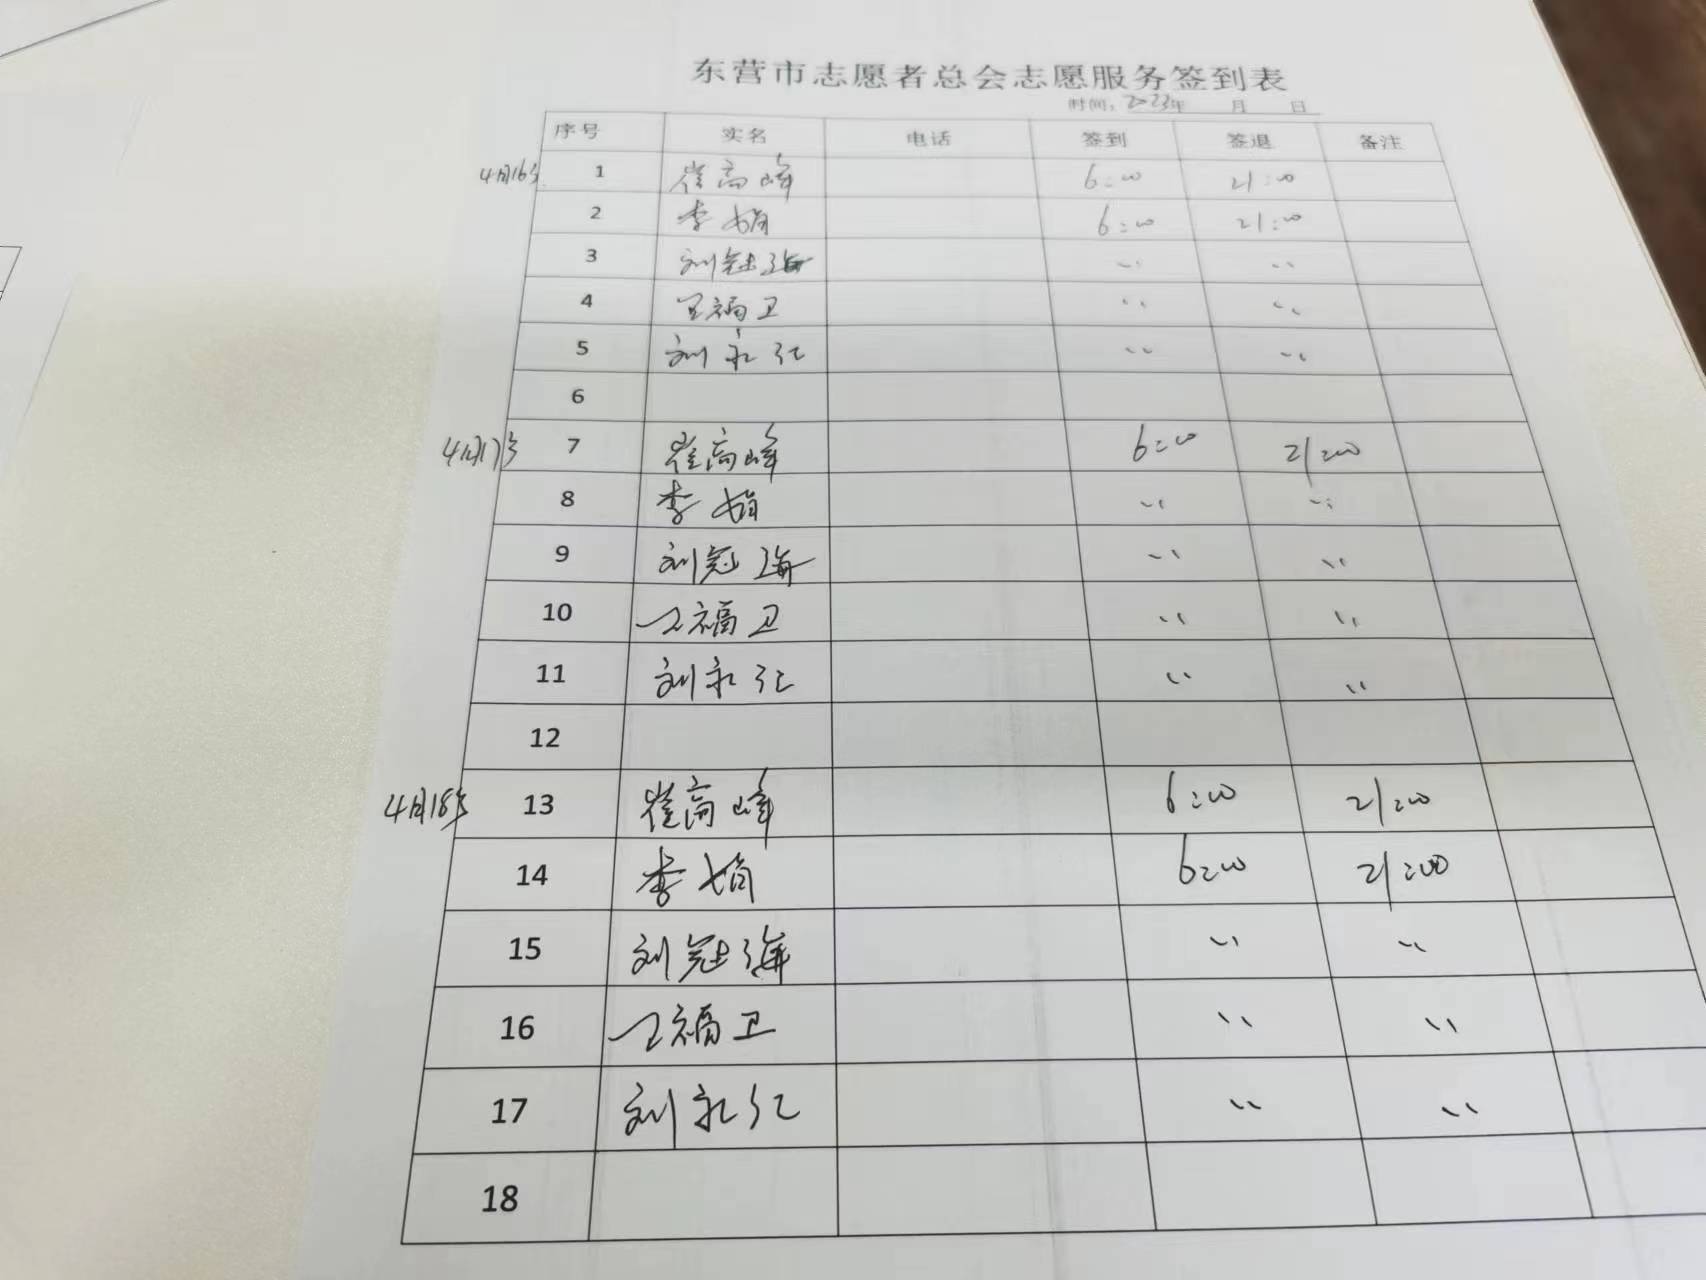 东营市志愿者总会志愿服务签到表
时间：2023年 月 日
序号 实名 电话 签到 签退 备注
4月16号 1 崔高峰 6:00 21:00
2 李娟 6:00 21:00
3 刘冠海 〃 〃
4 王福卫 〃 〃
5 刘永红 〃 〃
6
4月17号 7 崔高峰 6:00 21:00
8 李娟 〃 〃
9 刘冠海 〃 〃
10 王福卫 〃 〃
11 刘永红 〃 〃
12
4月18号 13 崔高峰 6:00 21:00
14 李娟 6:00 21:00
15 刘冠海 〃 〃
16 王福卫 〃 〃
17 刘永红 〃 〃
18